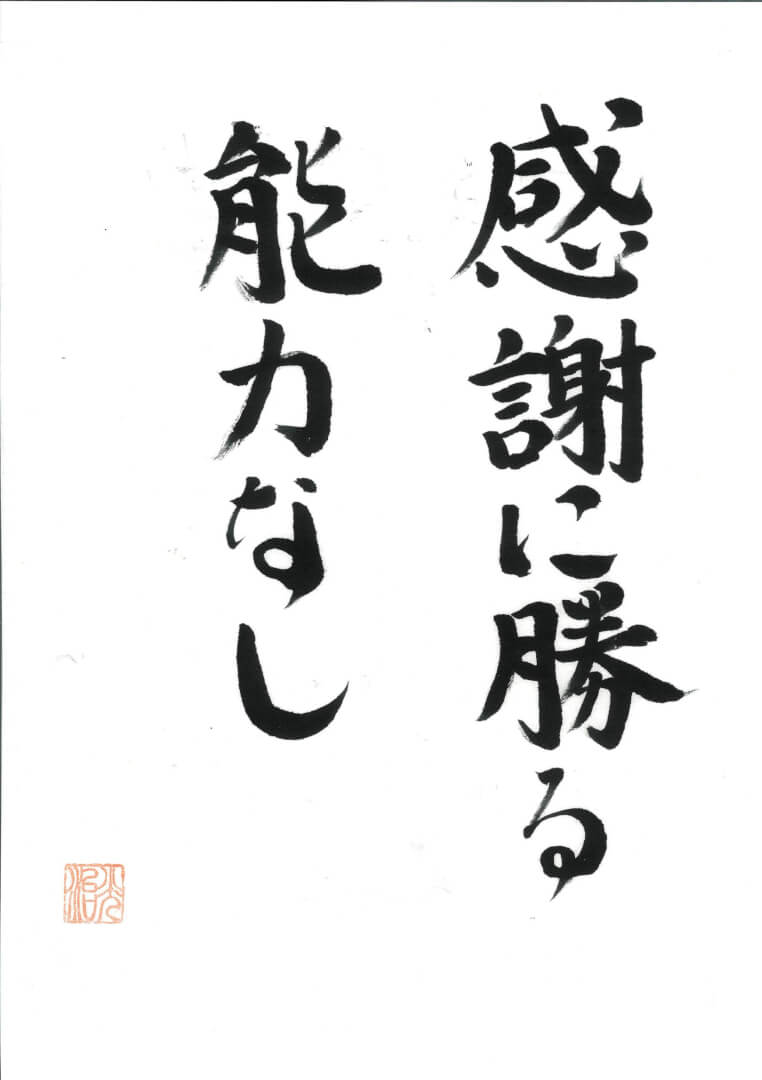 感謝に勝る
能力なし